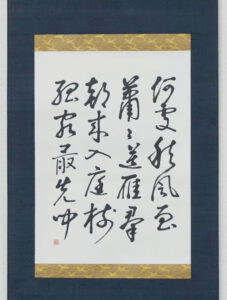 何處秋風至
蕭々送雁羣
朝来入庭樹
孤客最先聞